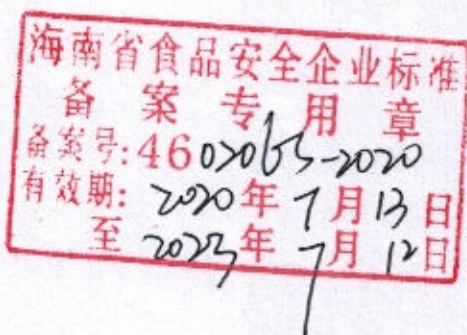 海南省食品安全企业标准
备案专用章
备案号:46020065-2020
有效期:2020年7月13日
至2023年7月12日